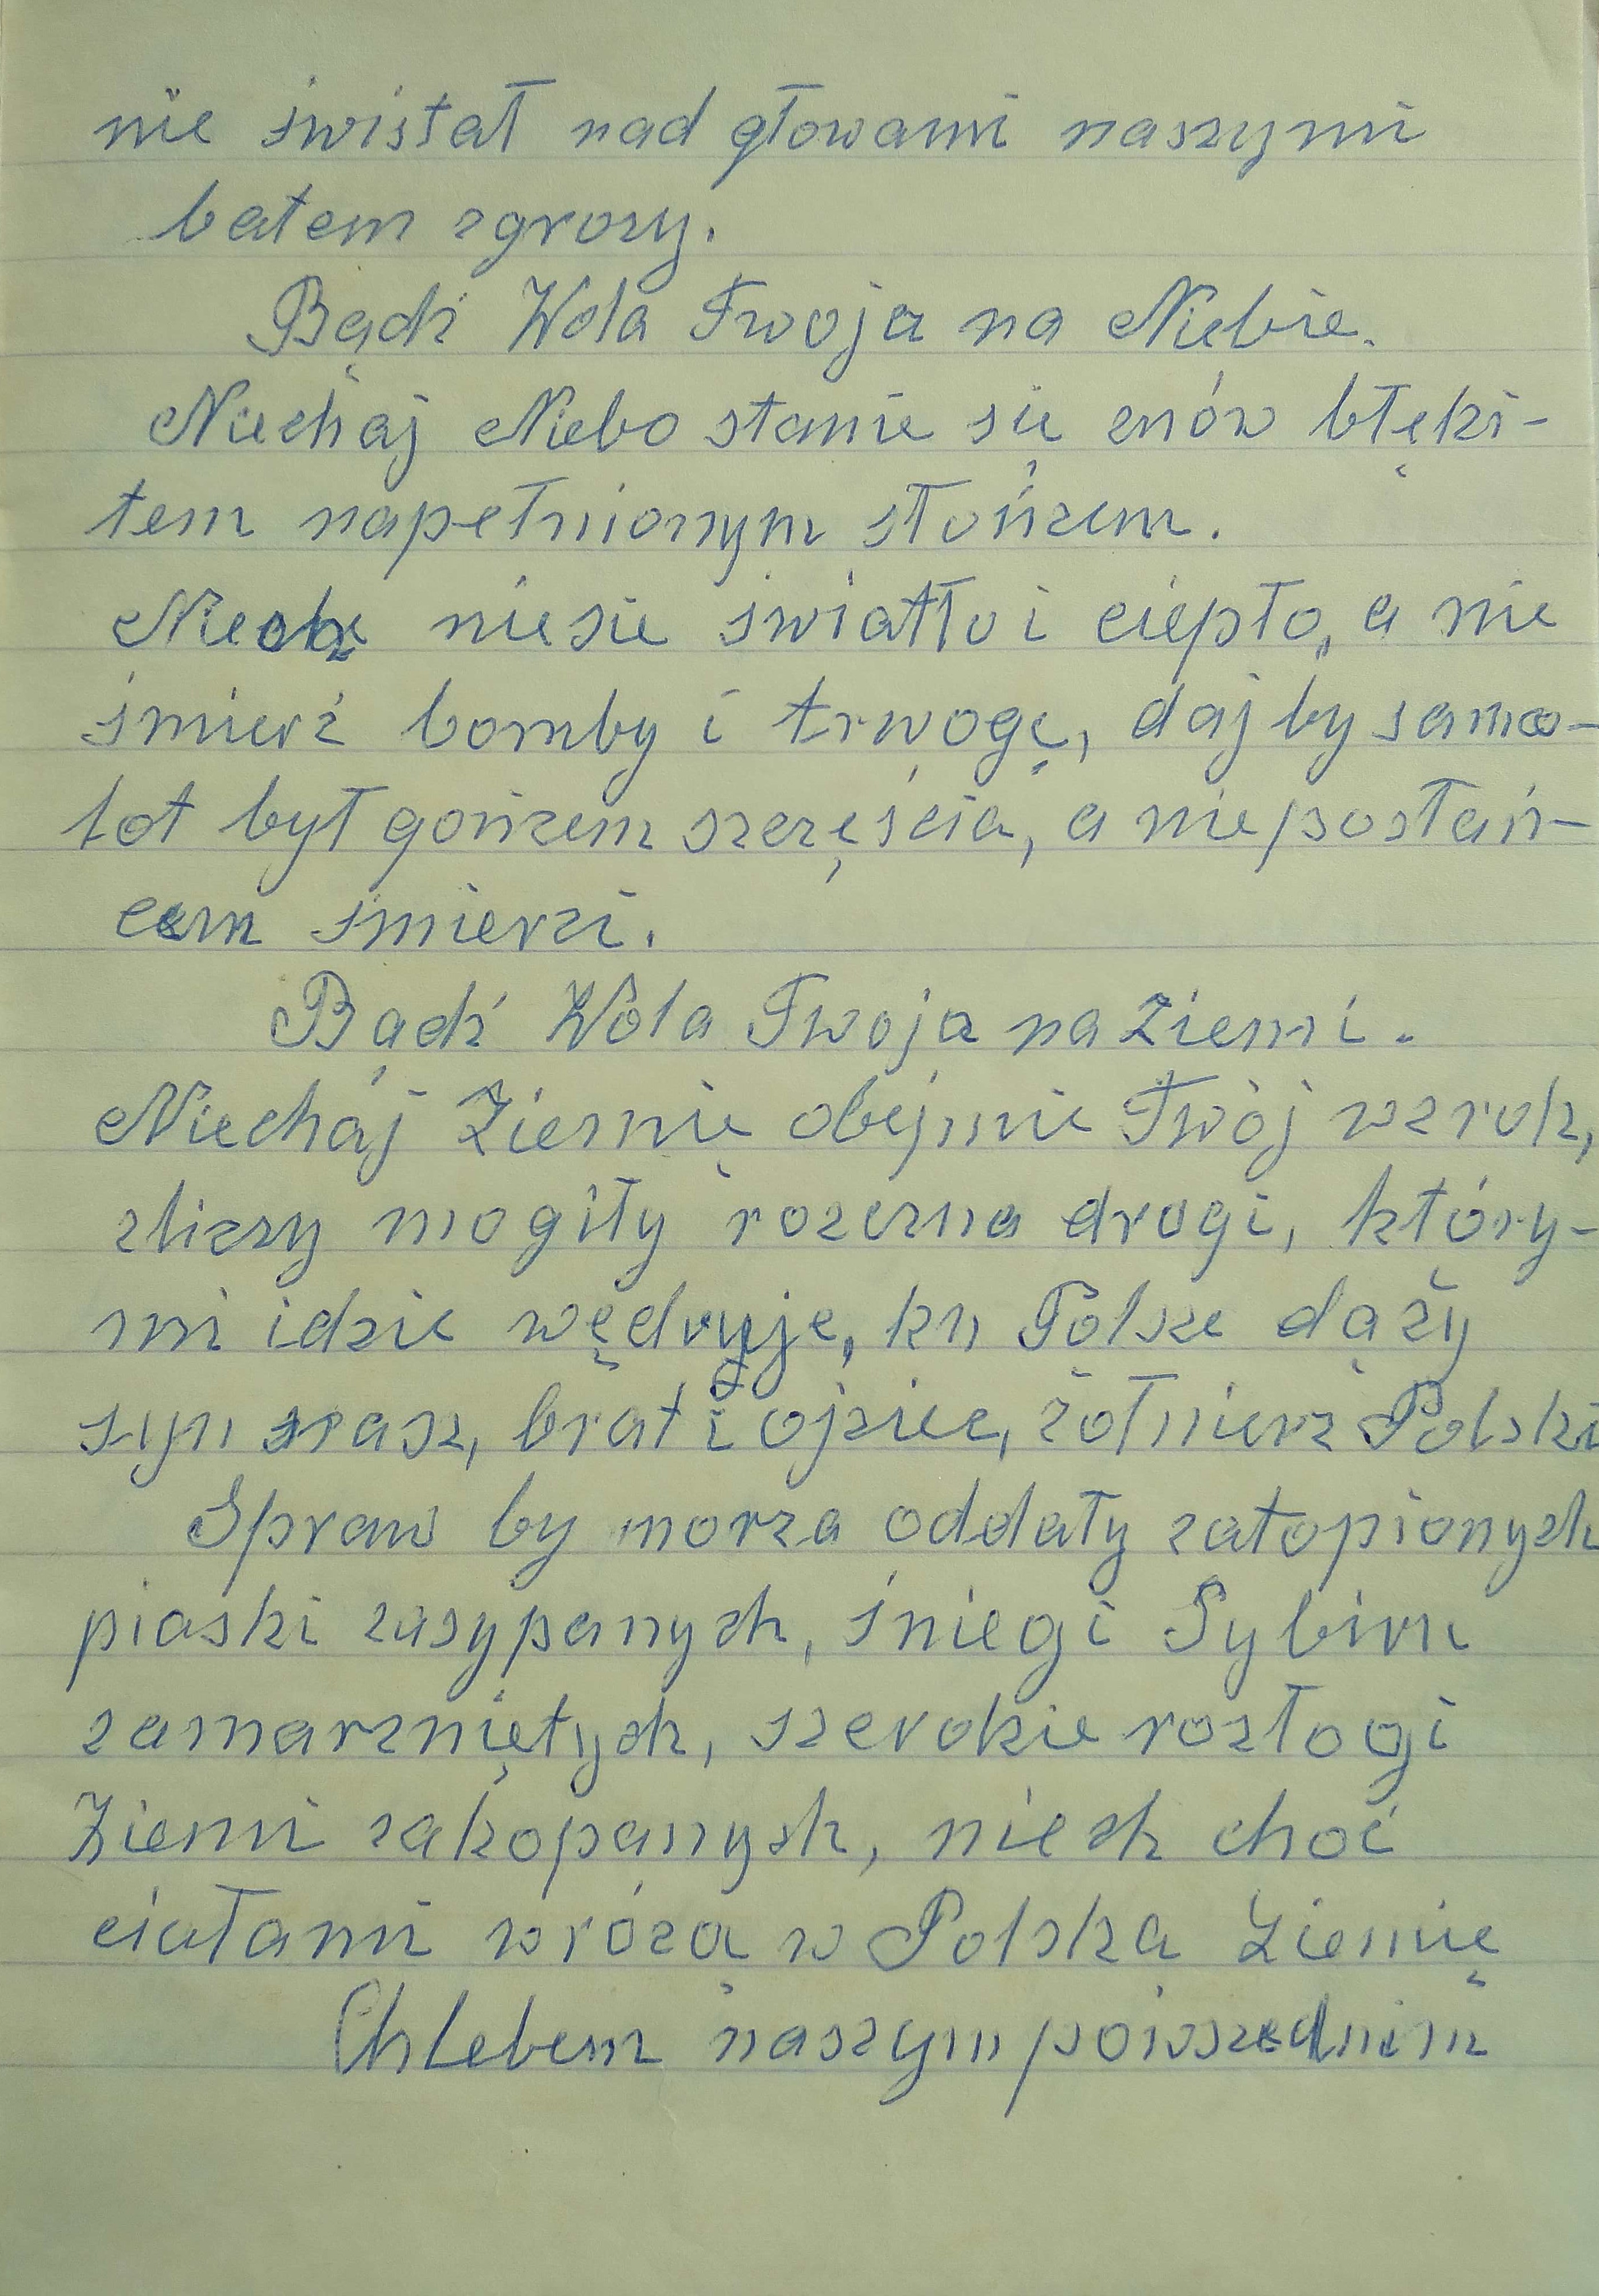 nie świstał nad głowami naszymi
batem zgrozy.
Bądź Wola Twoja na Niebie.
Niechaj Niebo stanie się znów błęki-
tem napełnionym słońcem.
Niech niesie światło i ciepło, a nie
śmierć bomby i trwogę, daj by samo-
lot był gońcem szczęścia, a nie posłań-
cem śmierci.
Bądź Wola Twoja na Ziemi.
Niechaj Ziemię obejmie Twój wzrok,
zliczy mogiły rozezna drogi, który-
mi idzie wędruje, ku Polsce dąży
syn nasz, brat i ojciec, żołnierz Polski
Spraw by morza oddały zatopionych
piaski zasypanych, śniegi Sybiru
zamarzniętych, szerokie rozłogi
Ziemi zakopanych, niech choć
ciałami wrócą w Polską Ziemię
Chlebem naszym powszednim